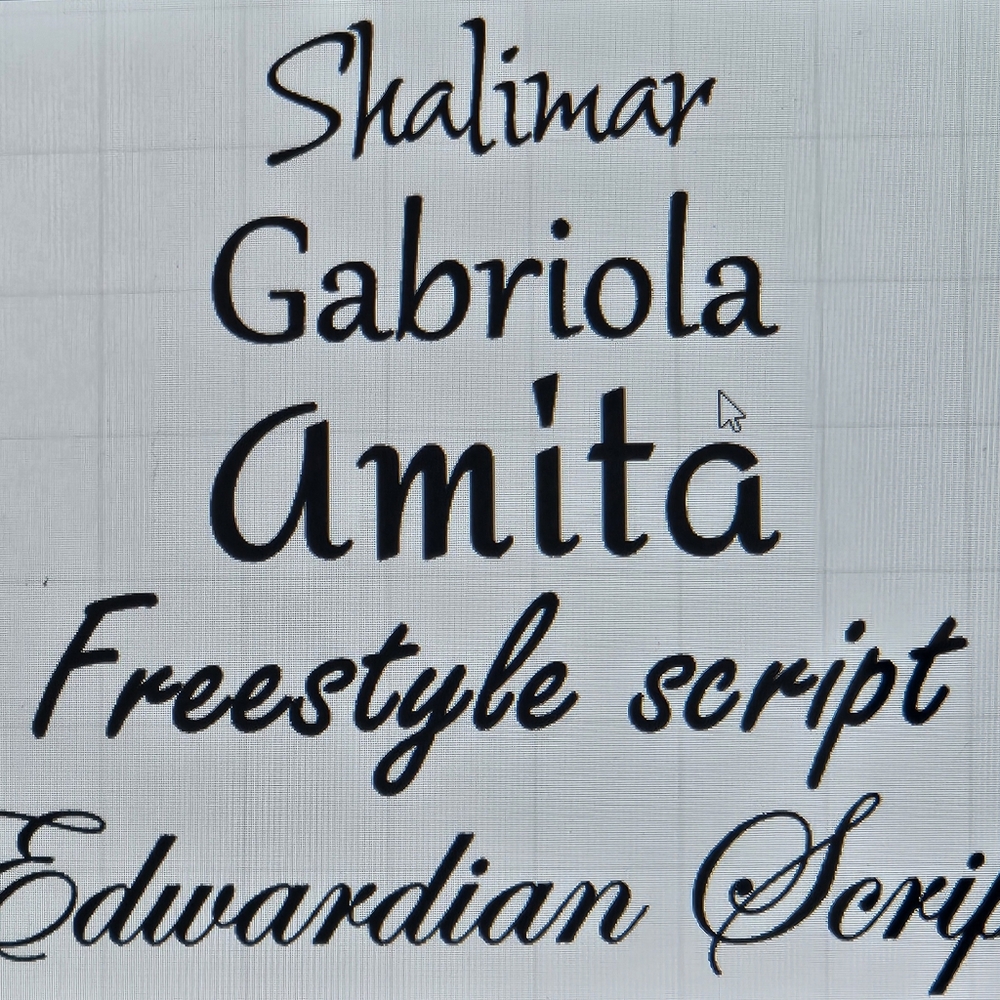 Shalimar
Gabriola
Amita
Freestyle script
Edwardian Scrip